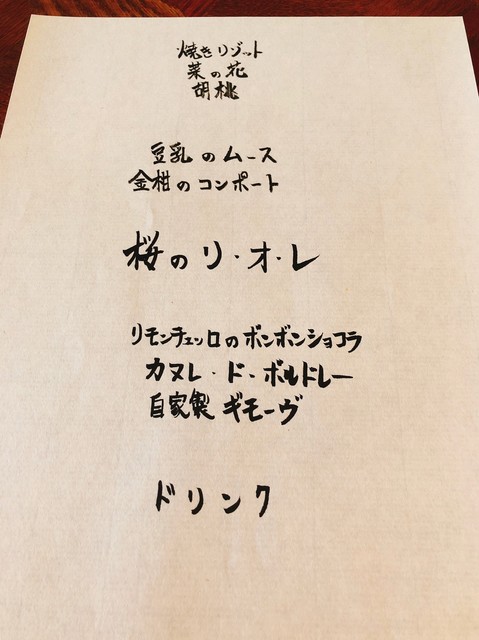 焼きリゾット
菜の花
胡桃
豆乳のムース
金柑のコンポート
桜のリ・オ・レ
リモンチェッロのボンボンショコラ
カヌレ・ド・ボルドレー
自家製 ギモーヴ
ドリンク